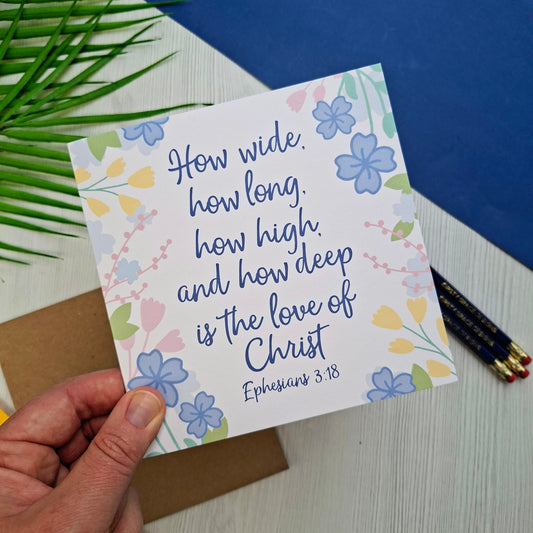 How wide,
how long,
how high,
and how deep
is the love of
Christ
Ephesians 3:18